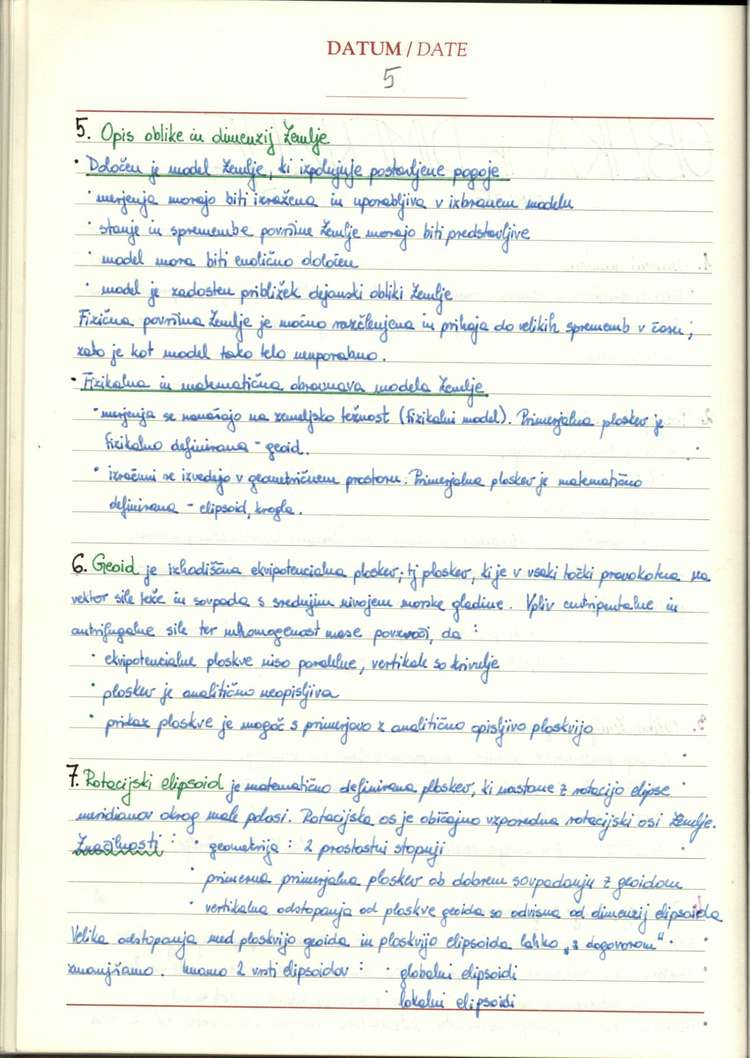 DATUM / DATE
5
5. Opis oblike in dimenzij Zemlje
· Določen je model Zemlje, ki izpolnjuje postavljene pogoje
· merjenja morajo biti izražena in uporabljiva v izbranem modelu
· stanje in spremembe površine Zemlje morajo biti predstavljive
· model mora biti enolično določen
· model je zadosten približek dejanski obliki Zemlje
Fizična površina Zemlje je močno razčlenjena in prihaja do velikih sprememb v času;
zato je kot model tako telo neuporabno.
· Fizikalna in matematična obravnava modela Zemlje
· merjenja se nanašajo na zemeljsko težnost (fizikalni model). Primerjalna ploskev je
fizikalno definirana - geoid.
· izračuni se izvedejo v geometričnem prostoru. Primerjalna ploskev je matematično
definirana - elipsoid, krogla.
6. Geoid je izhodiščna ekvipotencialna ploskev; tj ploskev, ki je v vsaki točki pravokotna na
vektor sile teže in sovpada s srednjim nivojem morske gladine. Vpliv centripetalne in
centrifugalne sile ter nehomogenost mase povzroči, da :
· ekvipotencialne ploskve niso paralelne, vertikale so krivulje
· ploskev je analitično neopisljiva
· prikaz ploskve je mogoč s primerjavo z analitično opisljivo ploskvijo
7. Rotacijski elipsoid je matematično definirana ploskev, ki nastane z rotacijo elipse
meridianov okrog male polosi. Rotacijska os je običajno vzporedna rotacijski osi Zemlje.
Značilnosti : · geometrija : 2 prostostni stopnji
· primerna primerjalna ploskev ob dobrem sovpadanju z geoidom
· vertikalna odstopanja od ploskve geoida so odvisna od dimenzij elipsoida
Velika odstopanja med ploskvijo geoida in ploskvijo elipsoida lahko „z dogovorom“
zmanjšamo. Imamo 2 vrsti elipsoidov : · globalni elipsoidi
· lokalni elipsoidi